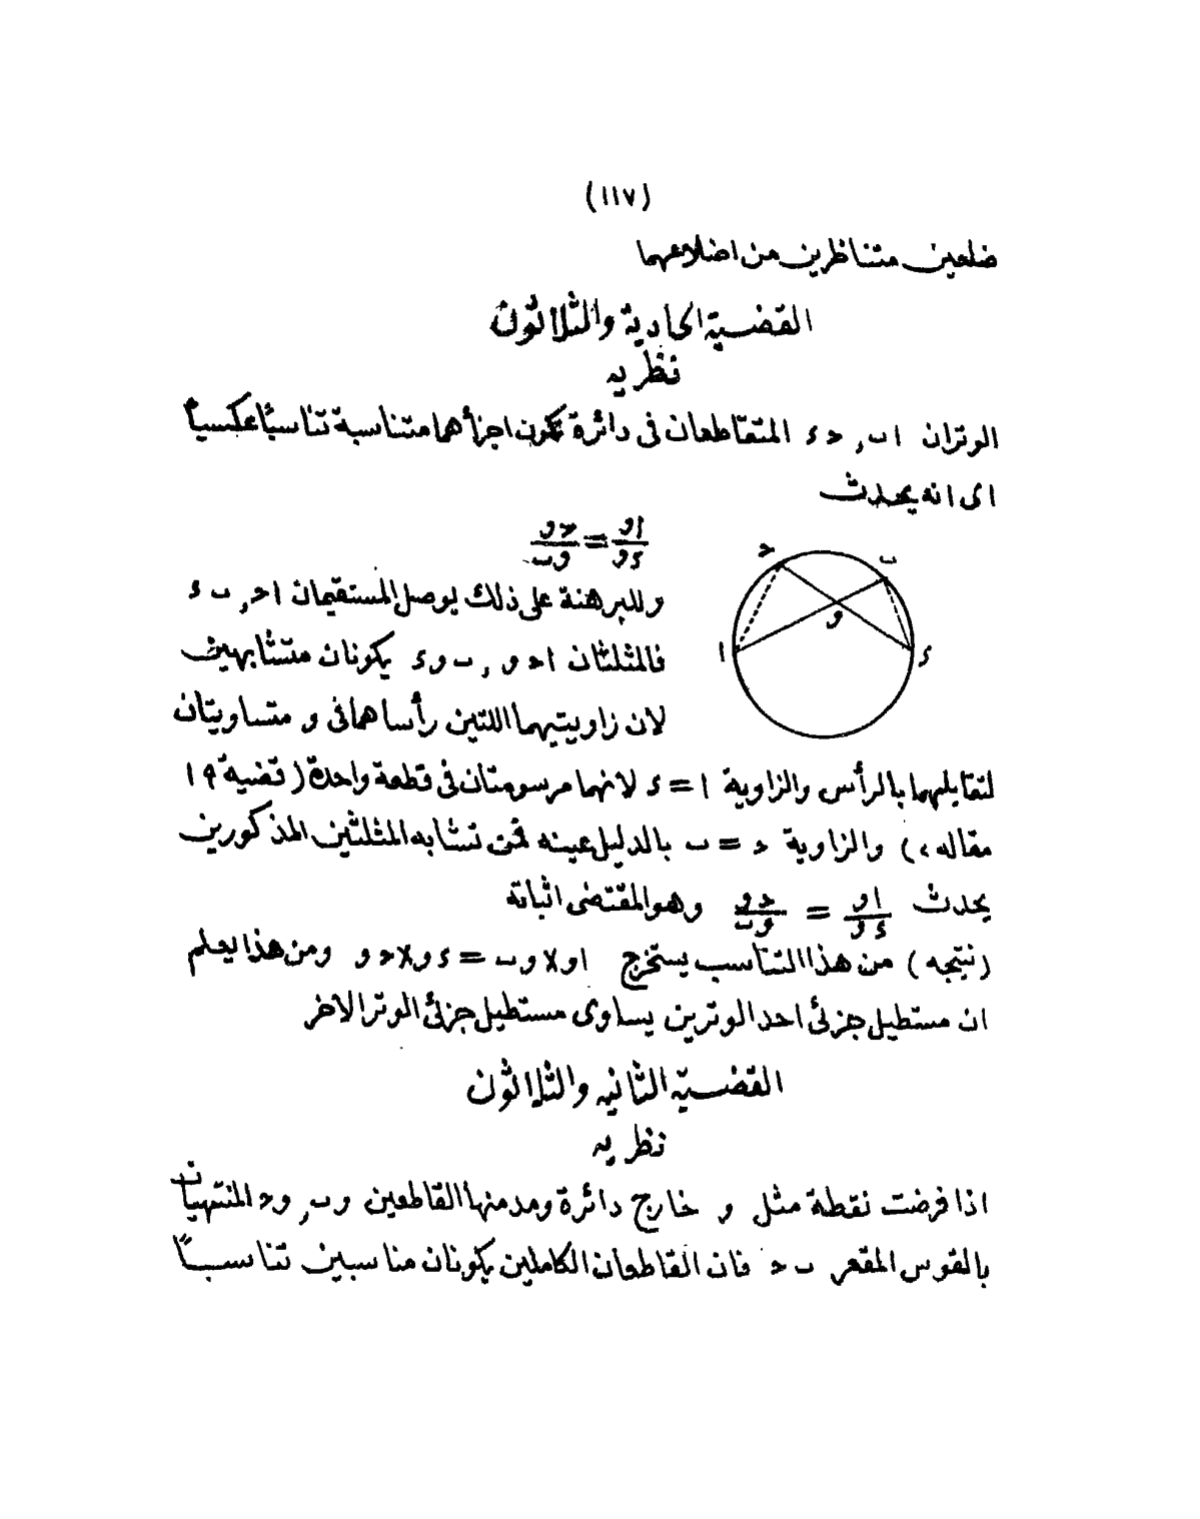 (١١٧)
ضلعين متناظرين من اضلاعهما
القضية الحادية والثلاثون
نظريه
الوتران اب , حء المتقاطعان فى دائرة تكون اجزأهما متناسبة تناسبًا عكسيا
اى انه يحدث
او/ءو = حو/وب
وللبرهنة على ذلك يوصل المستقيمان اح , بء
فالمثلثان احو , بوء يكونان متشابهين
لان زاويتيهما اللتين رأساهما فى و متساويتان
لتقابلهما بالرأس والزاوية ا = ء لانهما مرسومتان فى قطعة واحدة (قضية ١٩
مقاله ٢) والزاوية ح = ب بالدليل عينه فمن تشابه المثلثين المذكورين
يحدث او/ءو = حو/وب وهو المقتضى اثباته
(نتيجه) من هذا التناسب يستخرج او×وب = ءو×حو ومن هذا يعلم
ان مستطيل جزئى احد الوترين يساوى مستطيل جزئى الوتر الاخر
القضية الثانيه والثلاثون
نظريه
اذا فرضت نقطة مثل و خارج دائرة ومد منها القاطعين وب , وح المنتهيان
بالقوس المقعر بح فان القاطعان الكاملين يكونان مناسبين تناسبًا
ح
ب
و
ا
ء